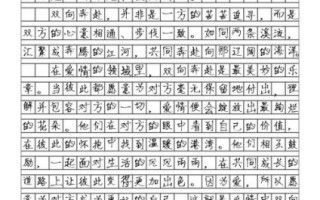 双向奔赴，并非是一方的苦苦追寻，而是
双方的心意相通、步伐一致。如同两条溪流，
汇聚成奔腾的江河，共同奔向那辽阔的海洋。
在爱情的领域里，双向奔赴是最美妙的乐
章。当彼此都愿意为对方毫无保留地付出，理
解并包容对方的一切，爱情便会绽放出最绚烂
的花朵。他们在对方的眼中看到自己的价值，
在彼此的怀抱中找到温暖的港湾。他们相互鼓
励，一起面对生活的风风雨雨，在共同成长的
道路上让彼此变得更加出色。因为爱，所以愿